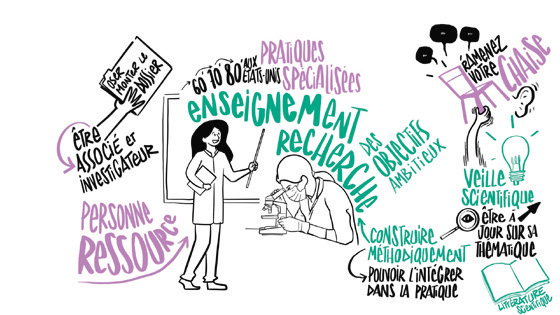 OSER
MONTER LE
DOSSIER
ÊTRE
ASSOCIÉ et
INVESTIGATEUR
PERSONNE
RESSOURCE
60 70 80 AUX
ÉTATS-UNIS
PRATIQUES
SPÉCIALISÉES
ENSEIGNEMENT
RECHERCHE
DES
OBJECTIFS
AMBITIEUX
CONSTRUIRE
MÉTHODIQUEMENT
POUVOIR L'INTÉGRER
DANS LA PRATIQUE
RAMENEZ
VOTRE
CHAISE
VEILLE
SCIENTIFIQUE
ÊTRE À
JOUR SUR SA
THÉMATIQUE
LITTÉRATURE
SCIENTIFIQUE